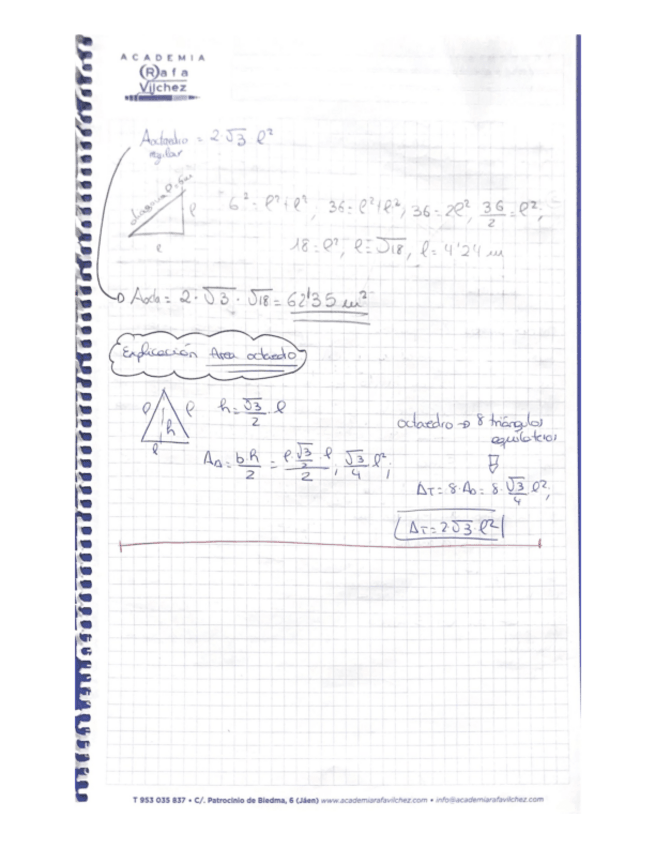 ACADEMIA
(R)afa
Vílchez
Aoctaedro = 2√3 ℓ²
regular
ℓ
ℓ
6² = ℓ²+ℓ², 36 = ℓ²+ℓ², 36 = 2ℓ², 36/2 = ℓ²;
18 = ℓ², ℓ = √18, ℓ = 4'24 m
Aocta = 2·√3·√18 = 62'35 m²
Explicación Area octaedro
ℓ ℓ h = √3/2 · ℓ
h
ℓ
A△ = b·h/2 = ℓ·√3/2·ℓ/2; √3/4 ℓ²;
octaedro → 8 triángulos
equiláteros
AT = 8·A△ = 8·√3/4·ℓ²;
AT = 2√3·ℓ²
T 953 035 837 • C/. Patrocinio de Biedma, 6 (Jáen) www.academiarafavilchez.com • info@academiarafavilchez.com